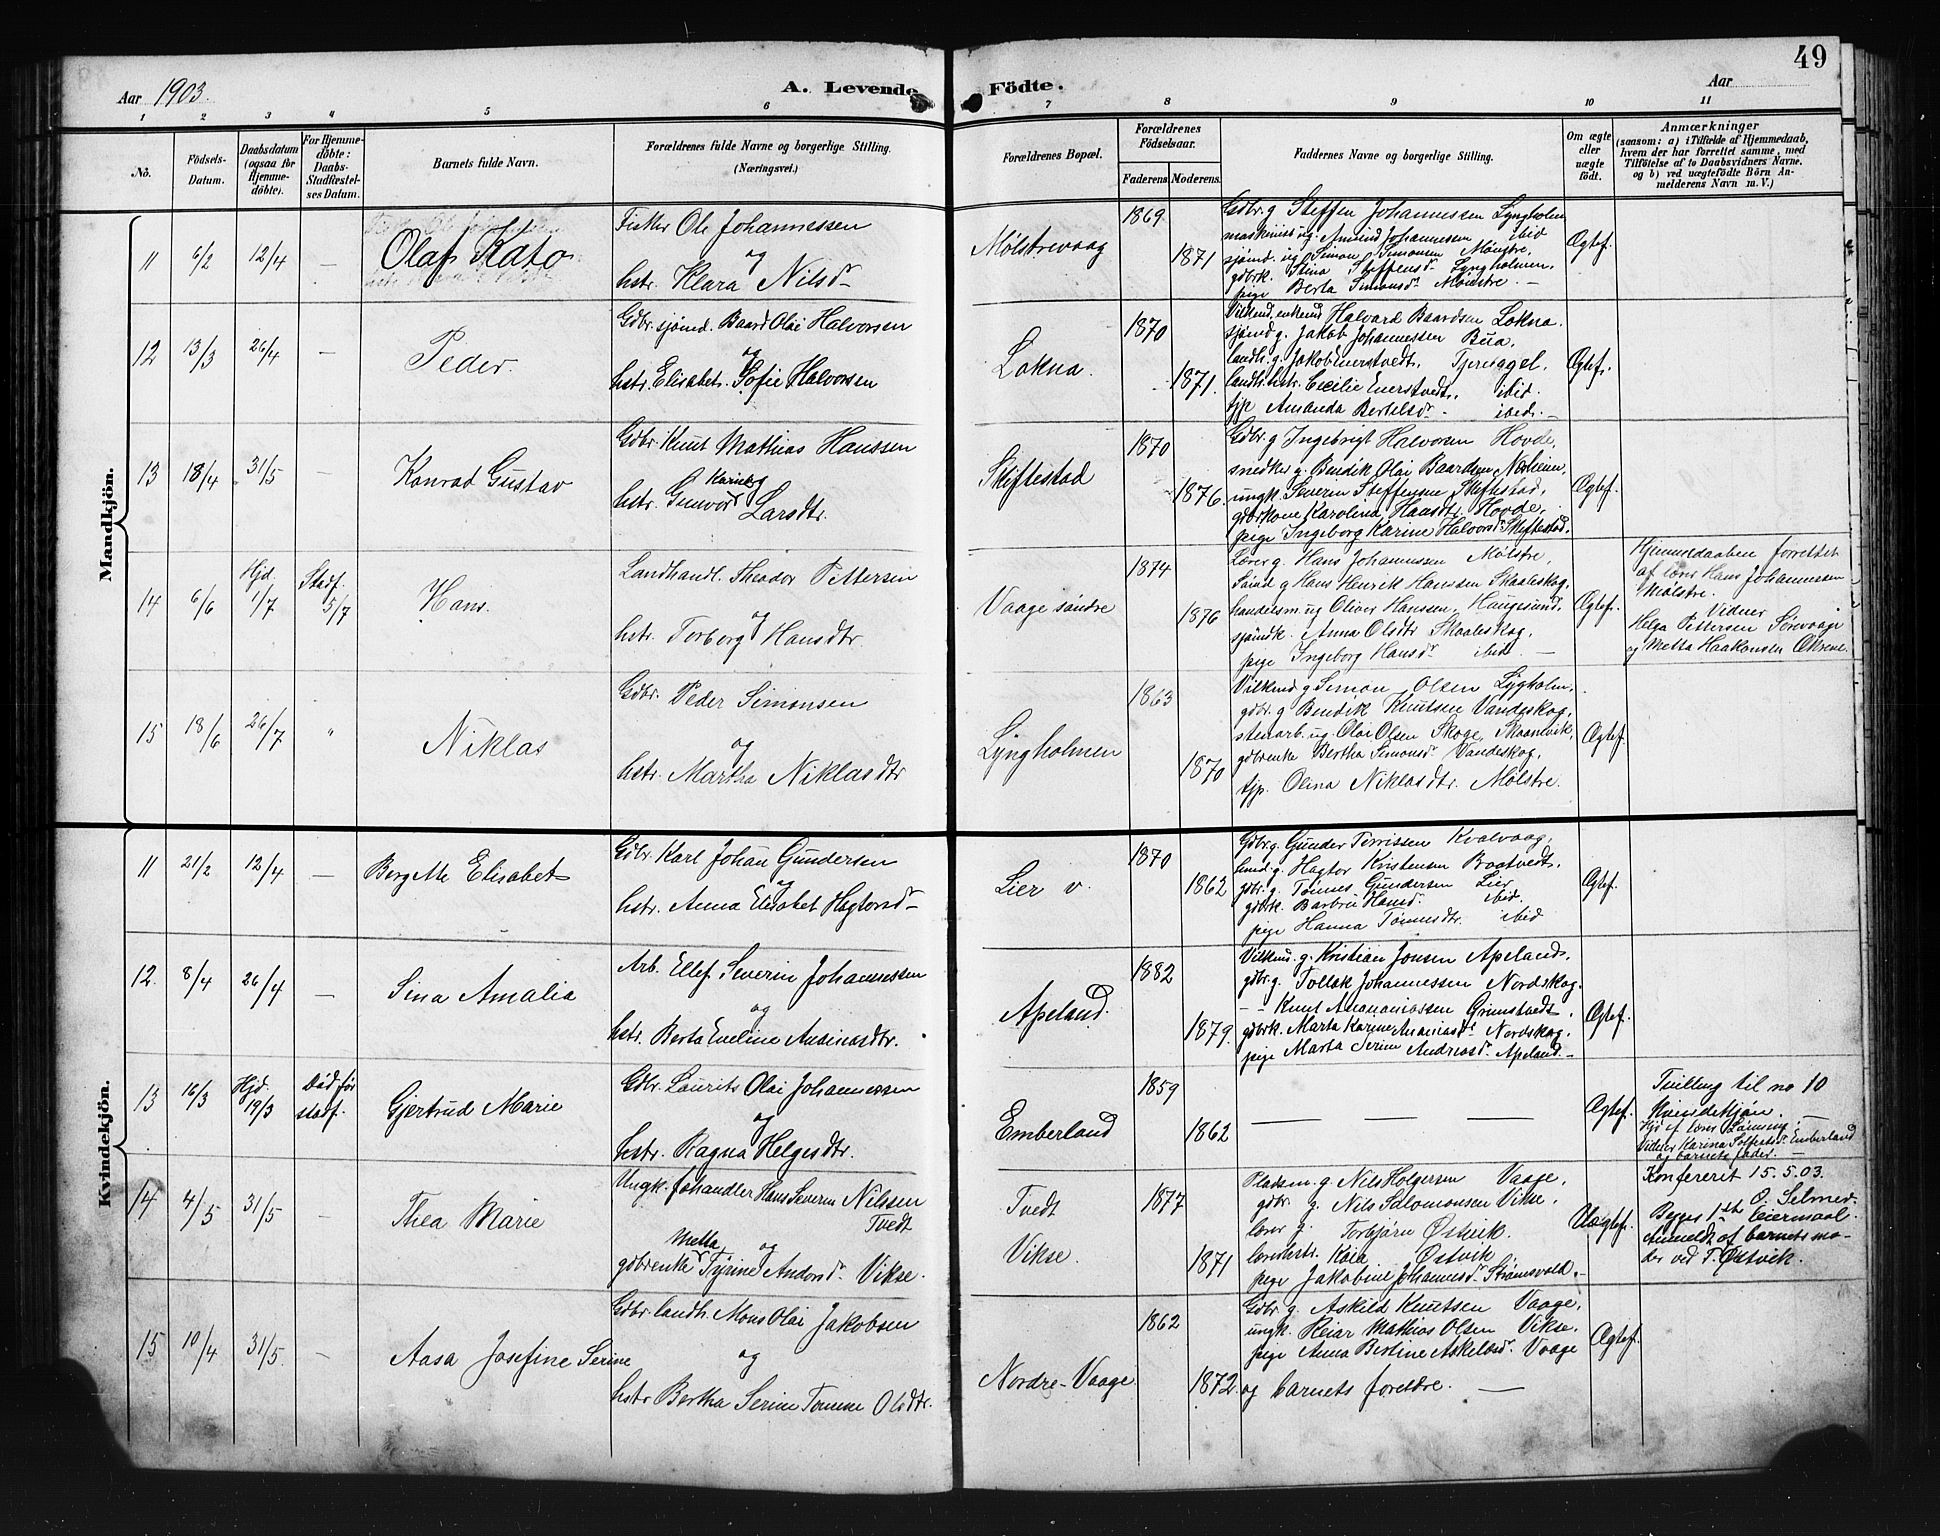 49
Aar 1903. A. Levende Födte. Aar
1 2 3 4 5 6 7 8 9 10 11
No. Födsels-Datum. Daabsdatum (ogsaa for Hjemme-döbte). For Hjemme-döbte: Daabs-Stadfæstelses Datum. Barnets fulde Navn. Forældrenes fulde Navne og borgerlige Stilling. (Næringsvei.) Forældrenes Bopæl. Forældrenes Födselsaar. Faderens Moderens. Faddernes Navne og borgerlige Stilling. Om ægte eller uægte födt. Anmærkninger (saasom: a) i Tilfælde af Hjemmedaab, hvem der har forrettet samme, med Tilföielse af to Daabsvidners Navne. og b) ved uægtefödte Börn Anmelderens Navn m. V.)
Mandkjön.
11 6/2 12/4 — Olaf Kato Fisker Ole Johannessen
og
hstr. Klara Nilsdr
Mölstrevaag 1869 1871
Gdbr. g Steffen Johannessen Lyngholm
maskinist ug. Amund Johannessen ibid
sjömd. ug Simon Simonsen Mölstre,
gdbrk. Stina Steffensdr. Lyngholmen,
pige Berta Simonsdr. Mölstre. —
Ægtef.
12 13/3 26/4 — Peder. Gdbr. sjömd. Baard Olai Halvorsen
og
hstr. Elisabet Sofie Halvorsen
Lokna. 1870 1871.
Vilkmd. enkemd Halvard Baardsen Lokna.
sjömd g. Jakob Johannessen Bua,
landh. g. Jakob Enerstvedt, Tjernagel,
landh.hstr. Cecilie Enerstvedt, ibid.
tjp Amanda Bertelsdr. ibid. —
Ægtef.
13 18/4 31/5 — Konrad Gustav Gdbr. Knut Mathias Hanssen
og
hstr. Gunvor Karine Larsdtr.
Skiftestad 1870 1876.
Gdbr. g Ingebrigt Halvorsen Hovde,
snedker g. Bendik Olai Baardsen Norheim,
ungk. Severin Steffensen Skiftestad,
gdbrkone Karolina Hansdtr. Hovde,
pige Ingeborg Karine Halvorsdr. Skiftestad.
Ægtef.
14 6/6 Hjd. 1/7 Stadf. 5/7 Hans. Landhandl. Theodor Pettersen
og
hstr. Torborg Hansdtr.
Vaage söndre 1874 1876
Lærer g. Hans Johannessen Mölstre,
Sömd g Hans Henrik Hanssen Skaaleskog,
handelsm. ug Oliver Hanssen, Haugesund,
sjömdk. Anna Olsdtr Skaaleskog,
pige Ingeborg Hansdr. ibid. —
Ægtef.
Hjemmedaaben forrettet
af lærer Hans Johannessen
Mölstre.
Vidner
Helga Pettersen Sörevaage
og Metta Haakonsen Økrene.
15 18/6 26/7 " Niklas Gdbr. Peder Simonsen
og
hstr. Martha Niklasdtr
Lyngholmen 1863 1870
Vilkmd g Simon Olsen Lygholm,
gdbr. g Bendik Knutsen Vandeskog,
stenarb. ug. Olai Olsen Skoge, Skaanevik,
gdbrenke Bertha Simonsdr. Vandeskog,
tjp. Olina Niklasdtr. Mölstre.
Ægtef.
Kvindekjön.
11 21/2 12/4 — Bergette Elisabet Gdbr. Karl Johan Gundersen
og
hstr. Anna Elisabet Hagtorsdr
Lier v. 1870 1862
Gdbr. g. Gunder Terrissen Kvalvaag,
g. Hagtor Kristensen Baatvedt,
gdbr. g. Tönnes Gundersen Lier,
gdbrk. Barbru Hansd. ibid.
pige Hanna Tönnesdtr. ibid
Ægtef.
12. 8/4 26/4 — Sina Amalia Arb. Ellef Severin Johannessen
og
hstr. Berta Eveline Andreasdtr.
Apeland. 1882 1879.
Vilkm. g. Kristian Jonsen Apeland,
gdbr. g. Tollak Johannessen Nordskog.
— — Knut Ananiassen Grimstvedt,
gdbrk. Marta Karine Ananiasdr. Nordskog,
pige Marta Serine Andreasdr. Apeland. —
Ægtef.
13 16/3 Hjd. 19/3 Död för stadf. Gjertrud Marie Gdbr. Laurits Olai Johannessen
og
hstr. Ragna Helgesdtr.
Emberland 1859 1862
— — — —
Ægtef.
Tvilling til no 10
Kvindekjön. —
Hjd af lærer Lönning;
Vidner Karina Sjursdr. Emberland
og barnets fader. —
14 4/5 31/5 — Thea Marie Ungk. fehandler Hans Severin Nilssen
Tvedt
og
gdbrenke Metta Tyrine Andorsdr. Vikse.
Tvedt
Vikse. 1877 1871
Pladsm. g. Nils Holgersen Vaage,
gdbr. g. Nils Salomonsen Vikse,
lærer g. Torbjörn Østvik.
lærerhstr. Kaia Østvik,
pige Jakobine Johannesdr. Strömsvold. —
Uægtef.
Konfererit 15.5.03.
O. Selmer.
Begges 1ste leiermaal.
Anmeldt af barnets mo-
der ved T. Østvik.
15 10/4 31/5. — Aasa Josefine Serine Gdbr. landh. Mons Olai Jakobsen
og
hstr Bertha Serine Tomine Olsdtr.
Nordre-Vaage 1862 1872.
Gdbr. g. Askild Knutsen Vaage,
ungk. Reiar Mathias Olsen Vikse,
pige Anna Bertine Askeldsdr. Vaage
og barnets foreldre. —
Ægtef.